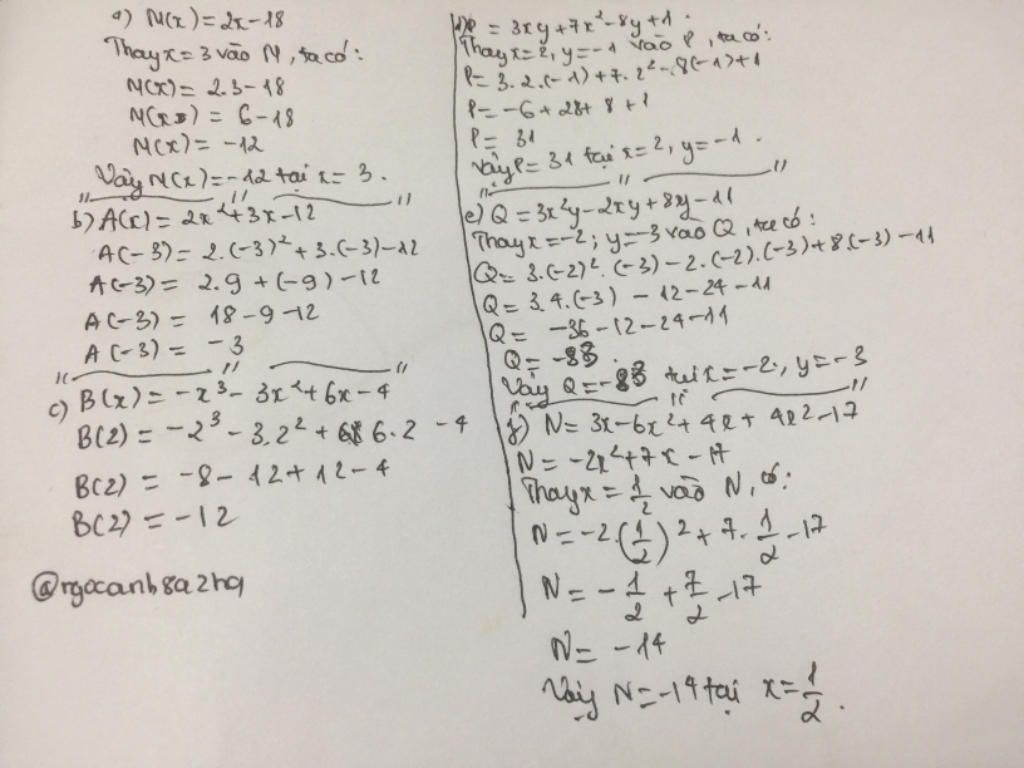 a) M(x) = 2x - 18
Thay x = 3 vào M, ta có:
M(x) = 2.3 - 18
M(x) = 6 - 18
M(x) = -12
Vậy M(x) = -12 tại x = 3.
b) A(x) = 2x² + 3x - 12
A(-3) = 2.(-3)² + 3.(-3) - 12
A(-3) = 2.9 + (-9) - 12
A(-3) = 18 - 9 - 12
A(-3) = -3
c) B(x) = -x³ - 3x² + 6x - 4
B(2) = -2³ - 3.2² + 6.2 - 4
B(2) = -8 - 12 + 12 - 4
B(2) = -12
@ngocanh8a2hq
d) P = 3xy + 7x² - 8y + 1.
Thay x = 2, y = -1 vào P, ta có:
P = 3.2.(-1) + 7.2² - 8(-1) + 1
P = -6 + 28 + 8 + 1
P = 31
Vậy P = 31 tại x = 2, y = -1.
e) Q = 3x²y - 2xy + 8y - 11
Thay x = -2; y = -3 vào Q, ta có:
Q = 3.(-2)².(-3) - 2.(-2).(-3) + 8.(-3) - 11
Q = 3.4.(-3) - 12 - 24 - 11
Q = -36 - 12 - 24 - 11
Q = -83.
Vậy Q = -83 tại x = -2, y = -3
f) N = 3x - 6x² + 4x + 4x² - 17
N = -2x² + 7x - 17
Thay x = 1/2 vào N, có:
N = -2.(1/2)² + 7.1/2 - 17
N = -1/2 + 7/2 - 17
N = -14
Vậy N = -14 tại x = 1/2.